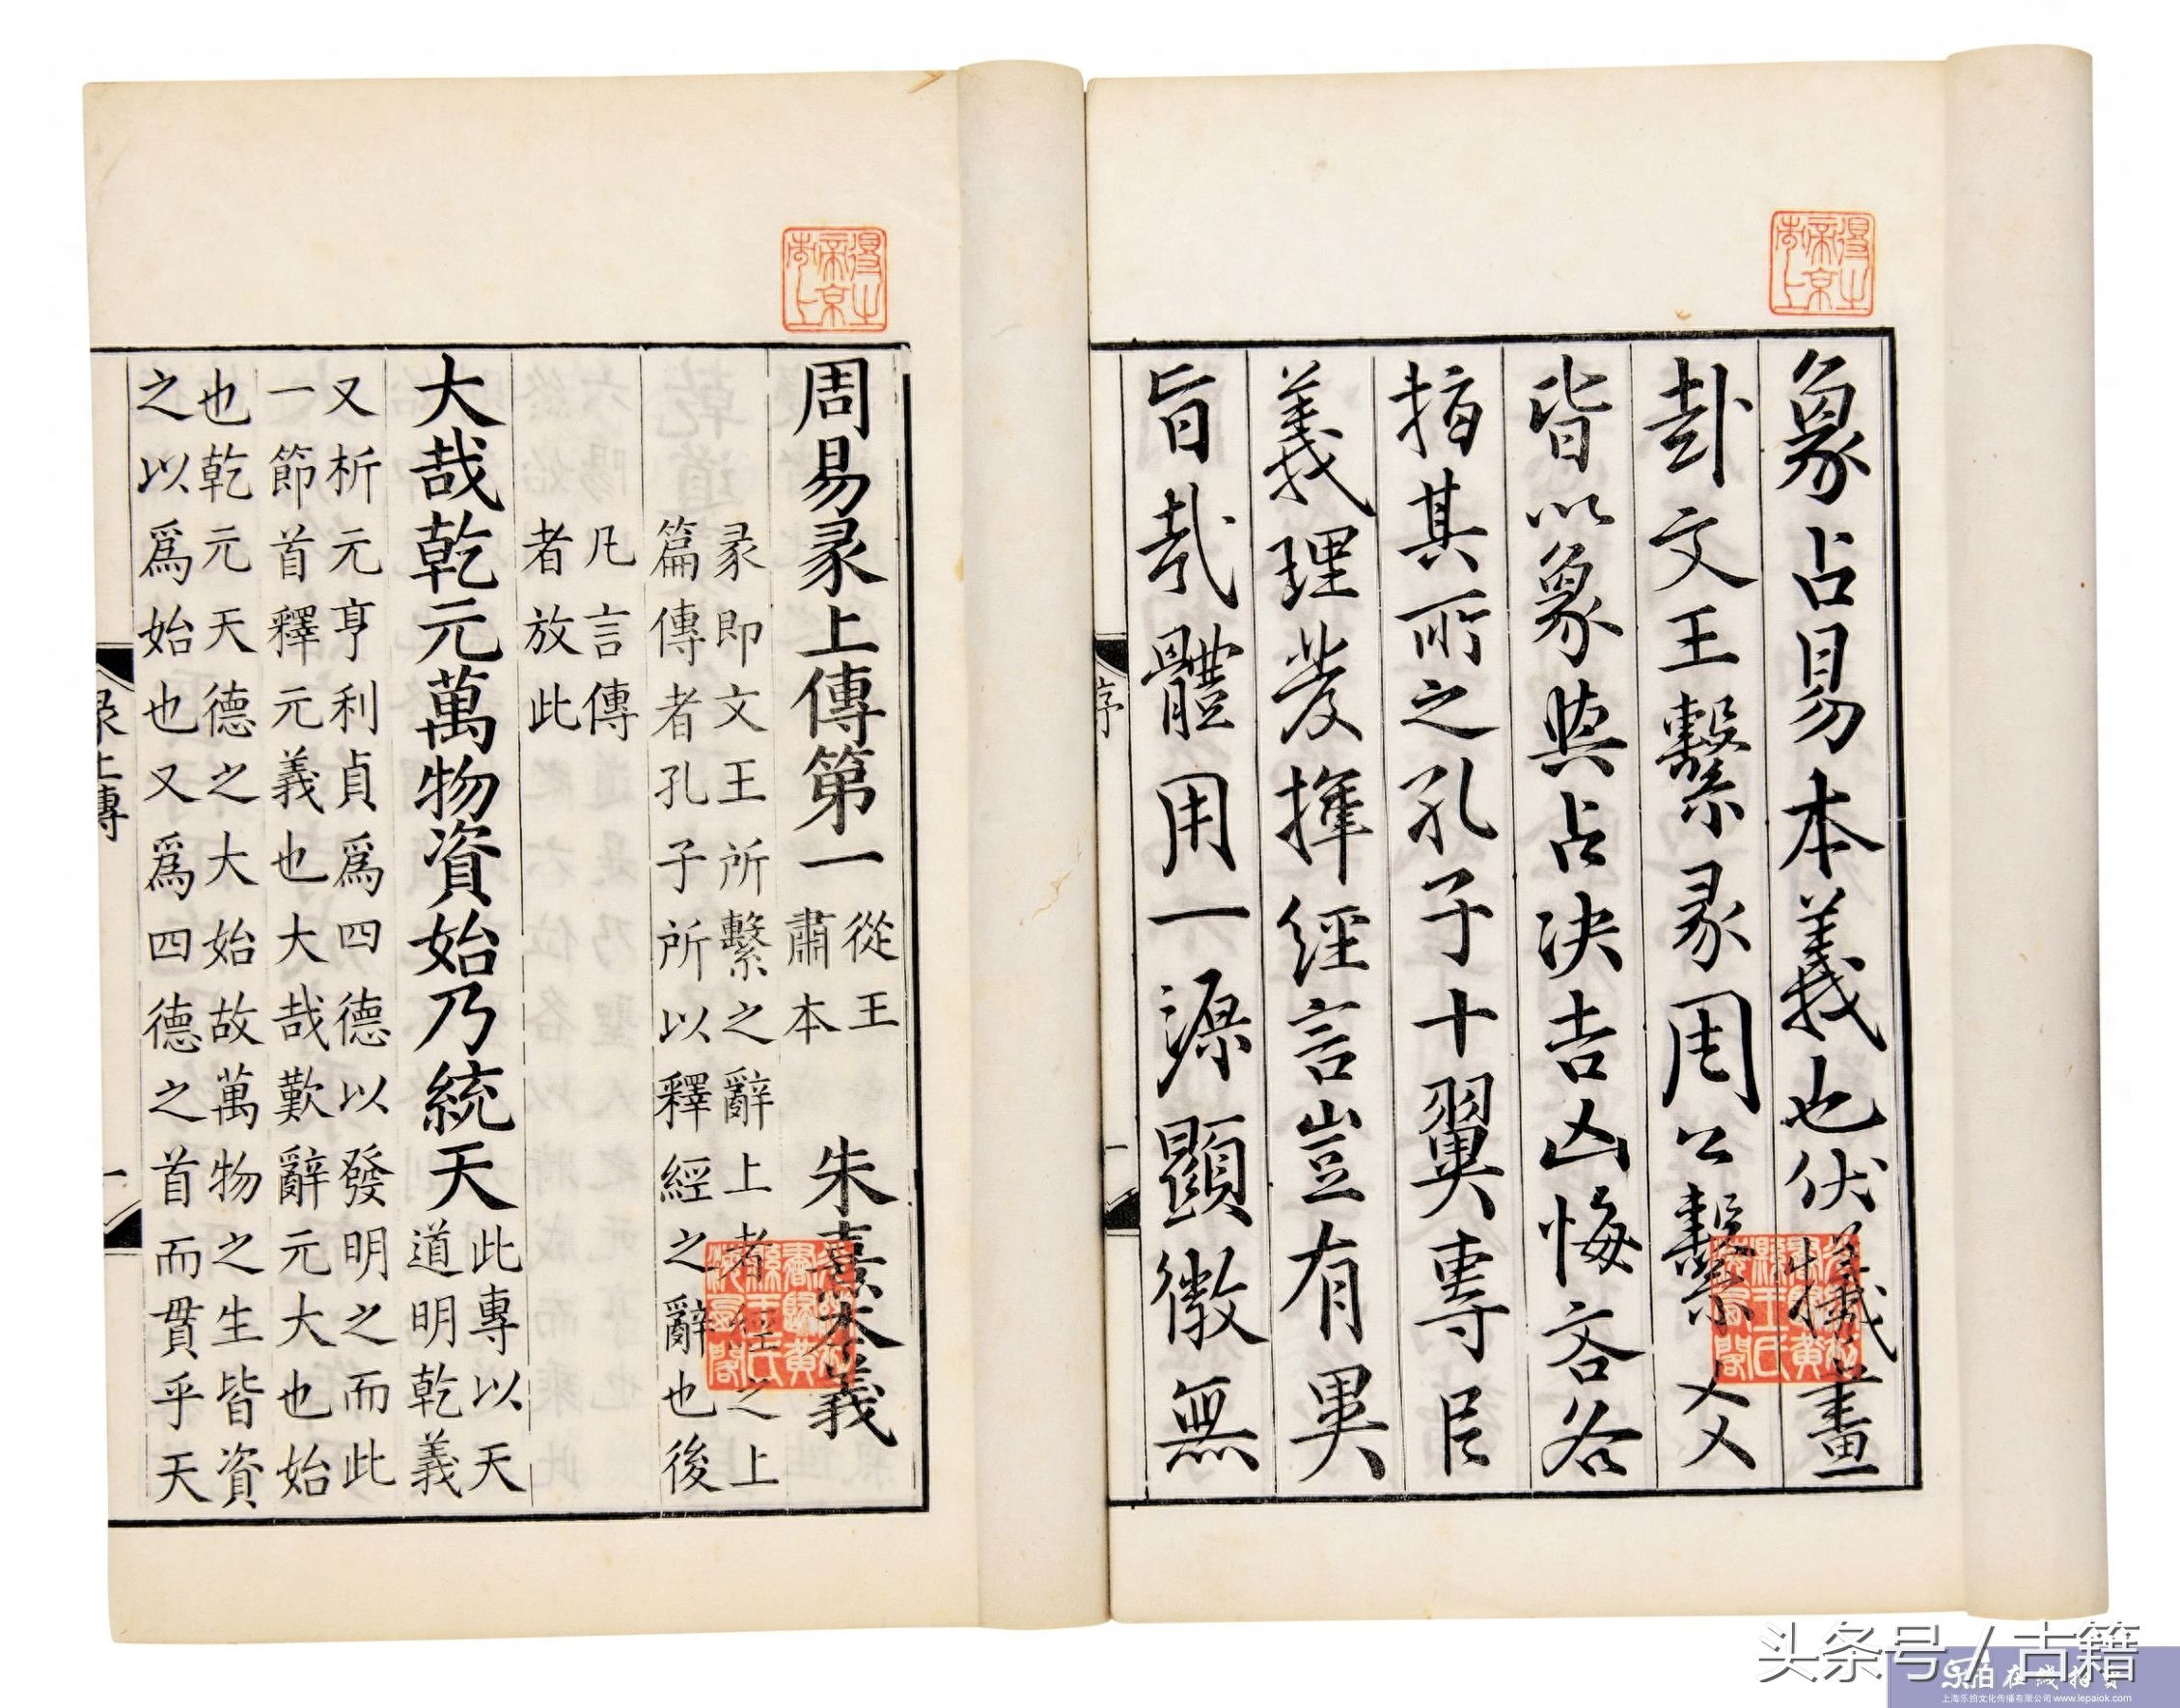 象占易本義也伏羲畫
卦文王繫彖周公繫爻
皆以象與占決吉凶悔吝各
指其所之孔子十翼專㠯
義理發揮經言豈有異
旨哉體用一源顯微無
序
一
周易彖上傳第一
從王
肅本
朱熹本義
彖即文王所繫之辭上者經之上
篇傳者孔子所以釋經之辭也後
凡言傳
者放此
大哉乾元萬物資始乃統天
此專以天
道明乾義
又析元亨利貞爲四德以發明之而此
一節首釋元義也大哉歎辭元大也始
也乾元天德之大始故萬物之生皆資
之以爲始也又爲四德之首而貫乎天
彖上傳
一
得之
帝京
头条号 / 古籍
乐拍在线拍卖
上海乐拍文化传播有限公司 www.lepaiok.com